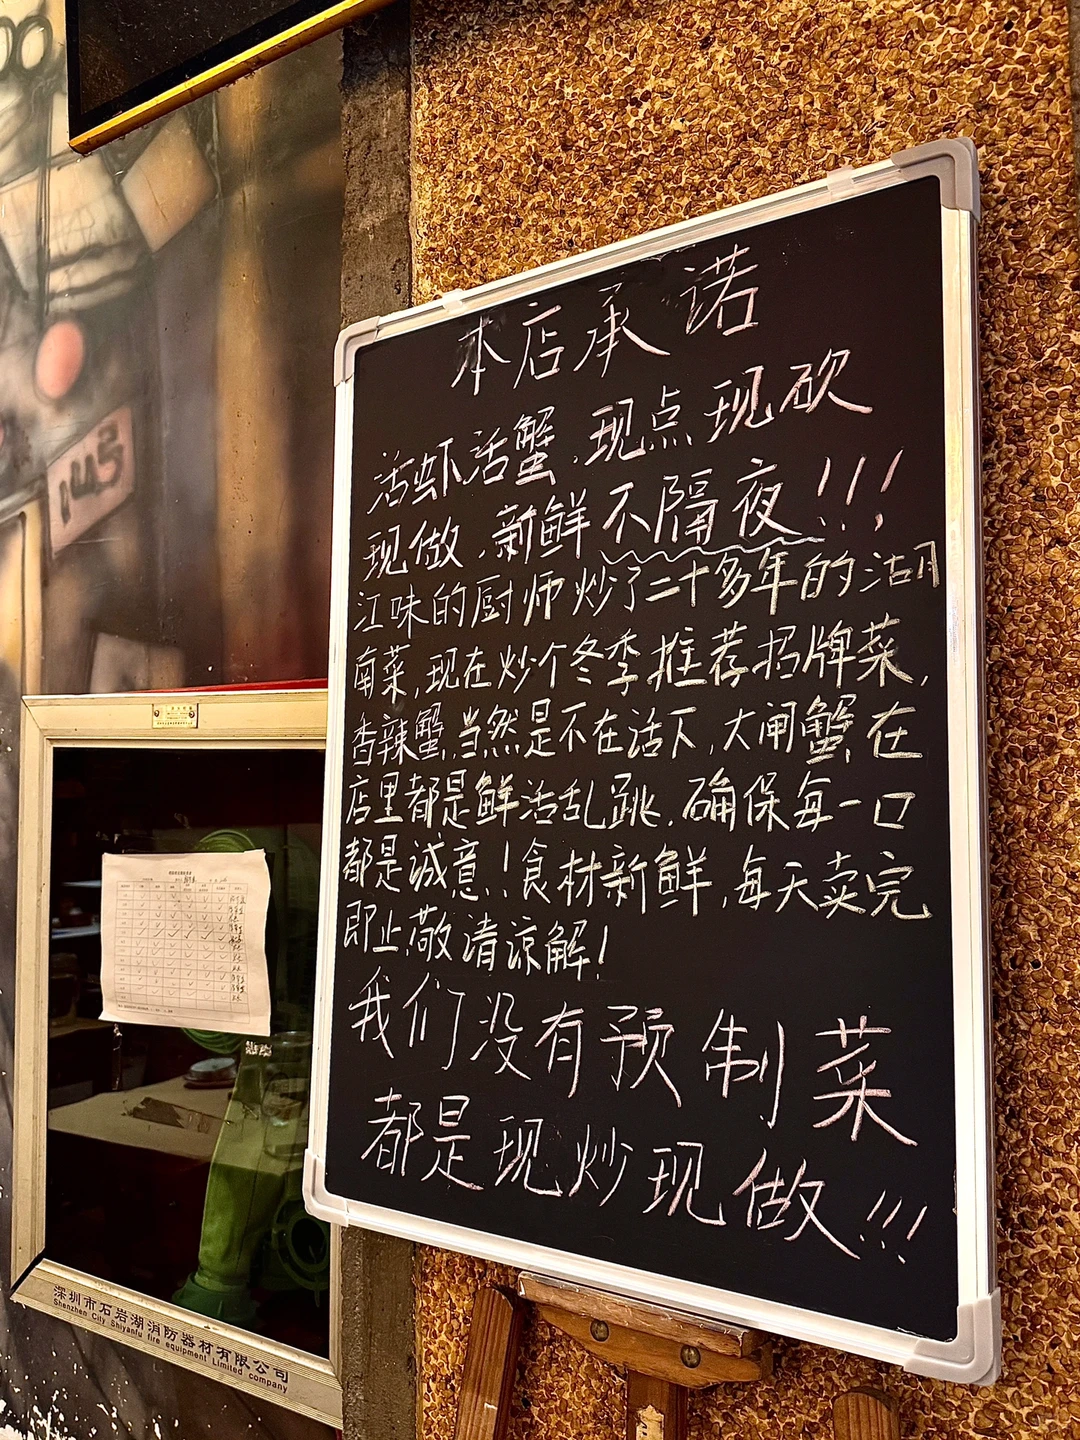 本店承诺
活虾活蟹，现点现砍
现做，新鲜不隔夜！！！
江味的厨师炒了二十多年的湖
南菜，现在炒个冬季推荐招牌菜，
香辣蟹，当然是不在话下，大闸蟹，在
店里都是鲜活乱跳，确保每一口
都是诚意！食材新鲜，每天卖完
即止敬请谅解！
我们没有预制菜
都是现炒现做！！！
145号
深圳市石岩湖消防器材有限公司
Shenzhen City Shiyanfu fire equipment Limited company